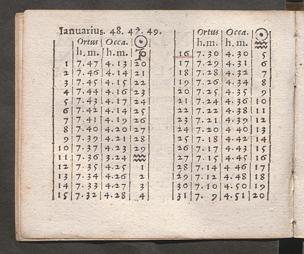 Ianuarius. 48. 49.
Ortus Occa.
h. m. h. m.
1 7.47 4.13 20
2 7.46 4.14 21
3 7.45 4.15 22
4 7.44 4.16 23
5 7.43 4.17 24
6 7.42 4.18 25
7 7.41 4.19 26
8 7.40 4.20 27
9 7.39 4.21 28
10 7.37 4.23 29
11 7.36
12 7.35 1
13 7.34 4.26
14 7.33 4.27 3
15 7.32 4.28 4
Ortus Occa.
h. m. h. m.
16 7.30 4.30 5
17 7.29 4.31 6
18 7.28 4.32 7
19 7.26 4.34 8
20 7.25 4.35 9
21 7.24 4.36 10
22 7.22 4.38 11
23 7.21 4.39 12
24 7.19 13
25 7.18 4.42 14
26 7.17 4.43 15
27 7.15 4.45 16
28 7.14 17
29 7.12 4.48 18
30 7.10 4.50 19
31 7. 9 4.51 20